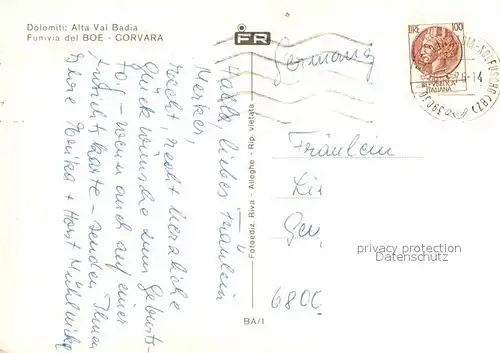 Dolomiti: Alta Val Badia
Funivia del BOE - CORVARA
FR
LIRE 100
REPUBBLICA
ITALIANA
Germany
Hallo, liebes Fräulein
Merker,
recht, recht herzliche
Glückwünsche zum Geburts-
tag - wenn auch auf einer
Ansichtskarte - senden Ihnen
Ihre Erika + Horst
Fotoediz. Riva - Alleghe - Rip. vietata
Fräulein
6800
privacy protection
Datenschutz
BA/1